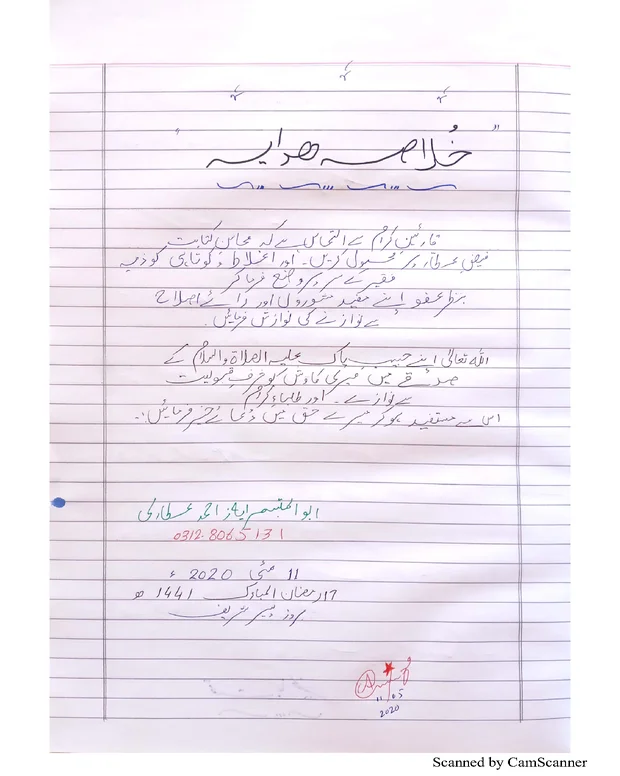 "خُلاصہ ھدایہ"
قارئین کرام سے التماس ہے کہ محاسن کتابت
فیضِ عطار پر محمول کریں۔ اور اغلاط و کوتاہی کو ذمہ
فقیر کے سر پر وضع فرما کر
بنظرِ عفو اپنے مفید مشوروں اور رائے اصلاح
سے نوازنے کی نوازش فرمائیں۔
اللہ تعالیٰ اپنے حبیب پاک علیہ الصلاۃ والسلام کے
صدقے میں میری کاوش کو شرفِ قبولیت
سے نوازے۔ اور طلباء کرام
اس سے مستفید ہوکر میرے حق میں دُعائے خیر فرمائیں۔
ابو المتبسم ایاز احمد عطاری
0312-8065131
11 مئی 2020 ء
17 رمضان المبارک 1441 ھ
بروز پیر شریف
11/05
2020
Scanned by CamScanner